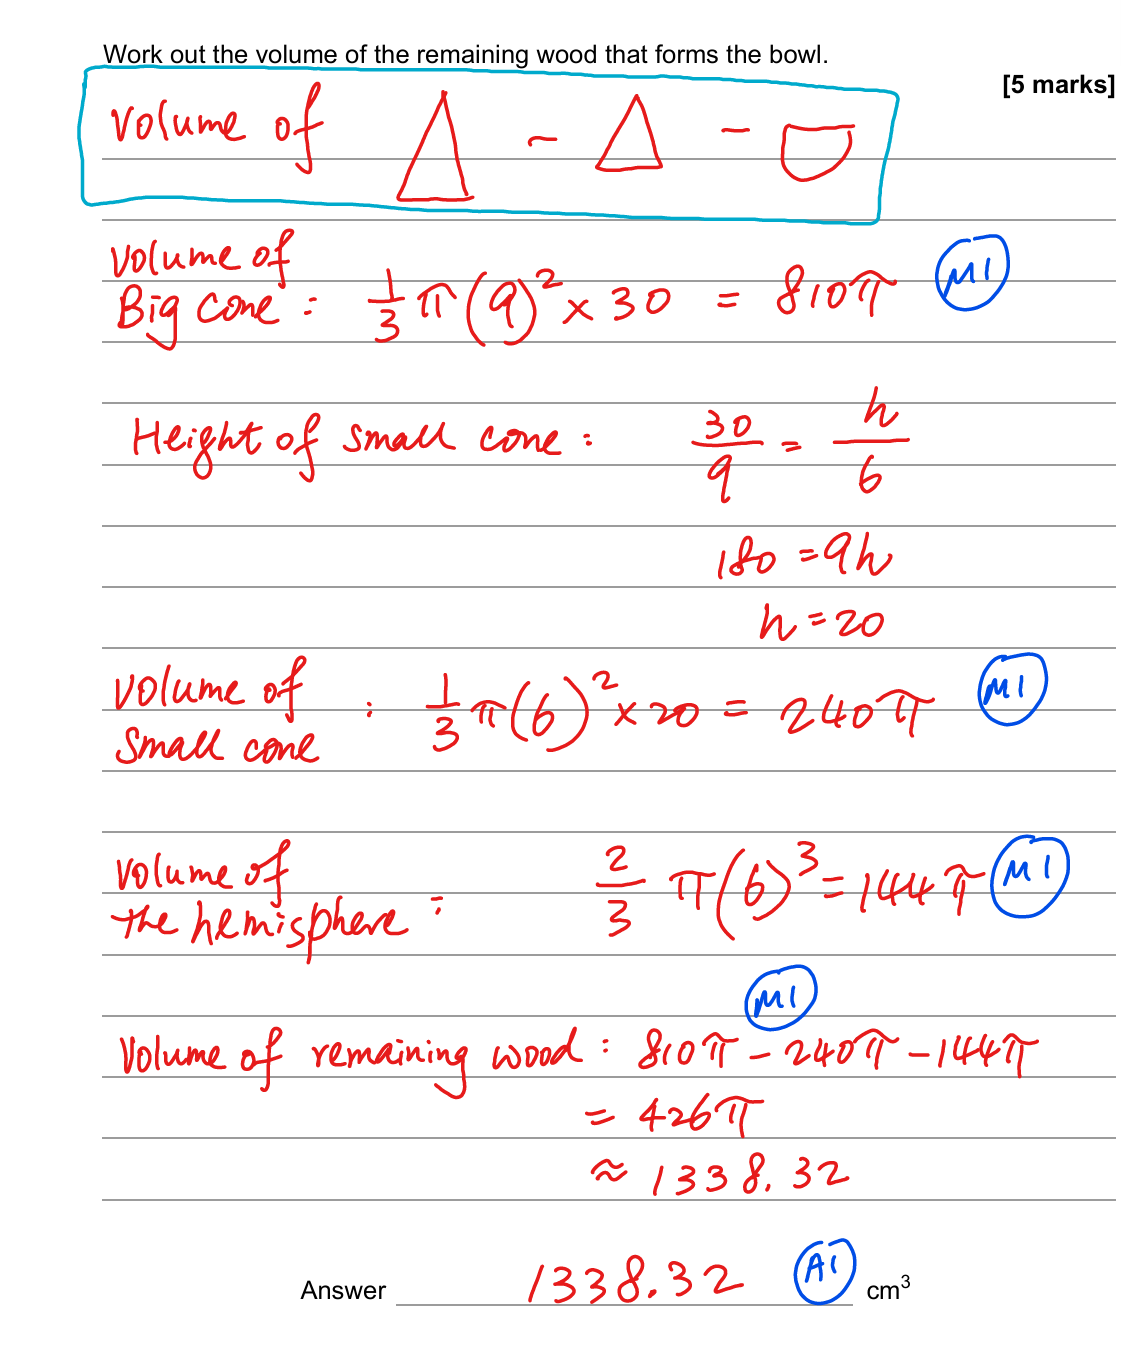 Work out the volume of the remaining wood that forms the bowl.
[5 marks]
Volume of △ - △ - ⌓
Volume of
Big cone : 1/3 π(9)² × 30 = 810π M1
Height of small cone : 30/9 = h/6
180 = 9h
h = 20
Volume of
small cone : 1/3 π(6)² × 20 = 240π M1
Volume of
the hemisphere : 2/3 π(6)³ = 144π M1
M1
Volume of remaining wood : 810π - 240π - 144π
= 426π
≈ 1338.32
Answer 1338.32 A1 cm³